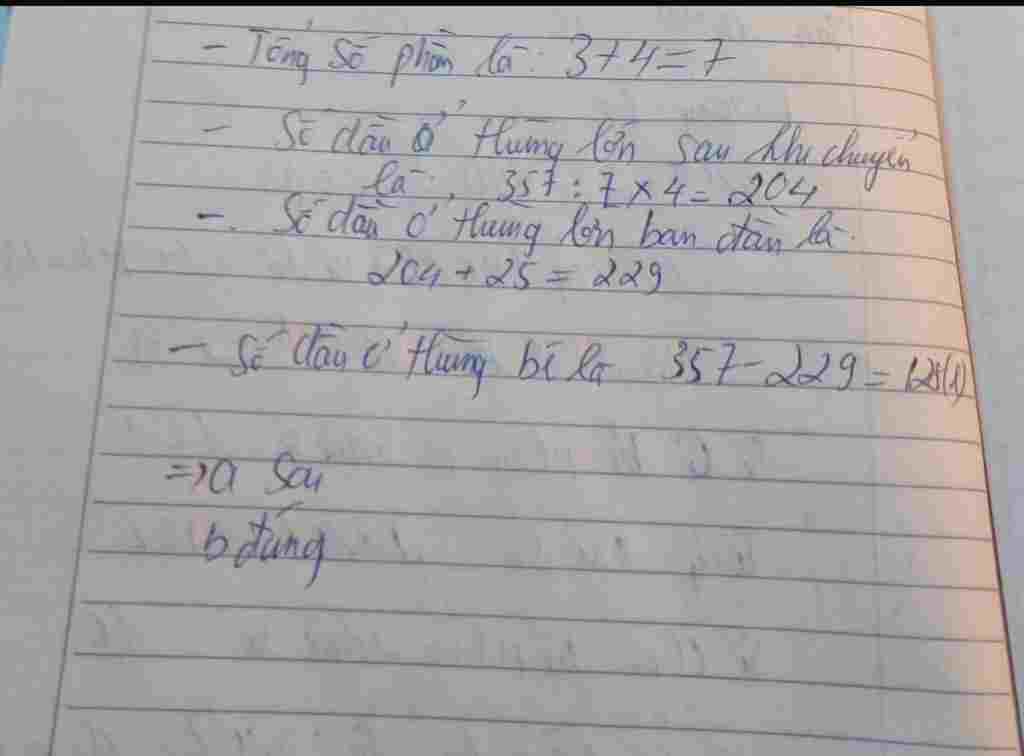 - Tổng số phần là: 3+4=7
- Số dầu ở thùng lớn sau khi chuyển
là: 357 : 7 x 4 = 204
- Số dầu ở thùng lớn ban đầu là:
204 + 25 = 229
- Số dầu ở thùng bé là 357 - 229 = 128(l)
=> a Sai
b đúng